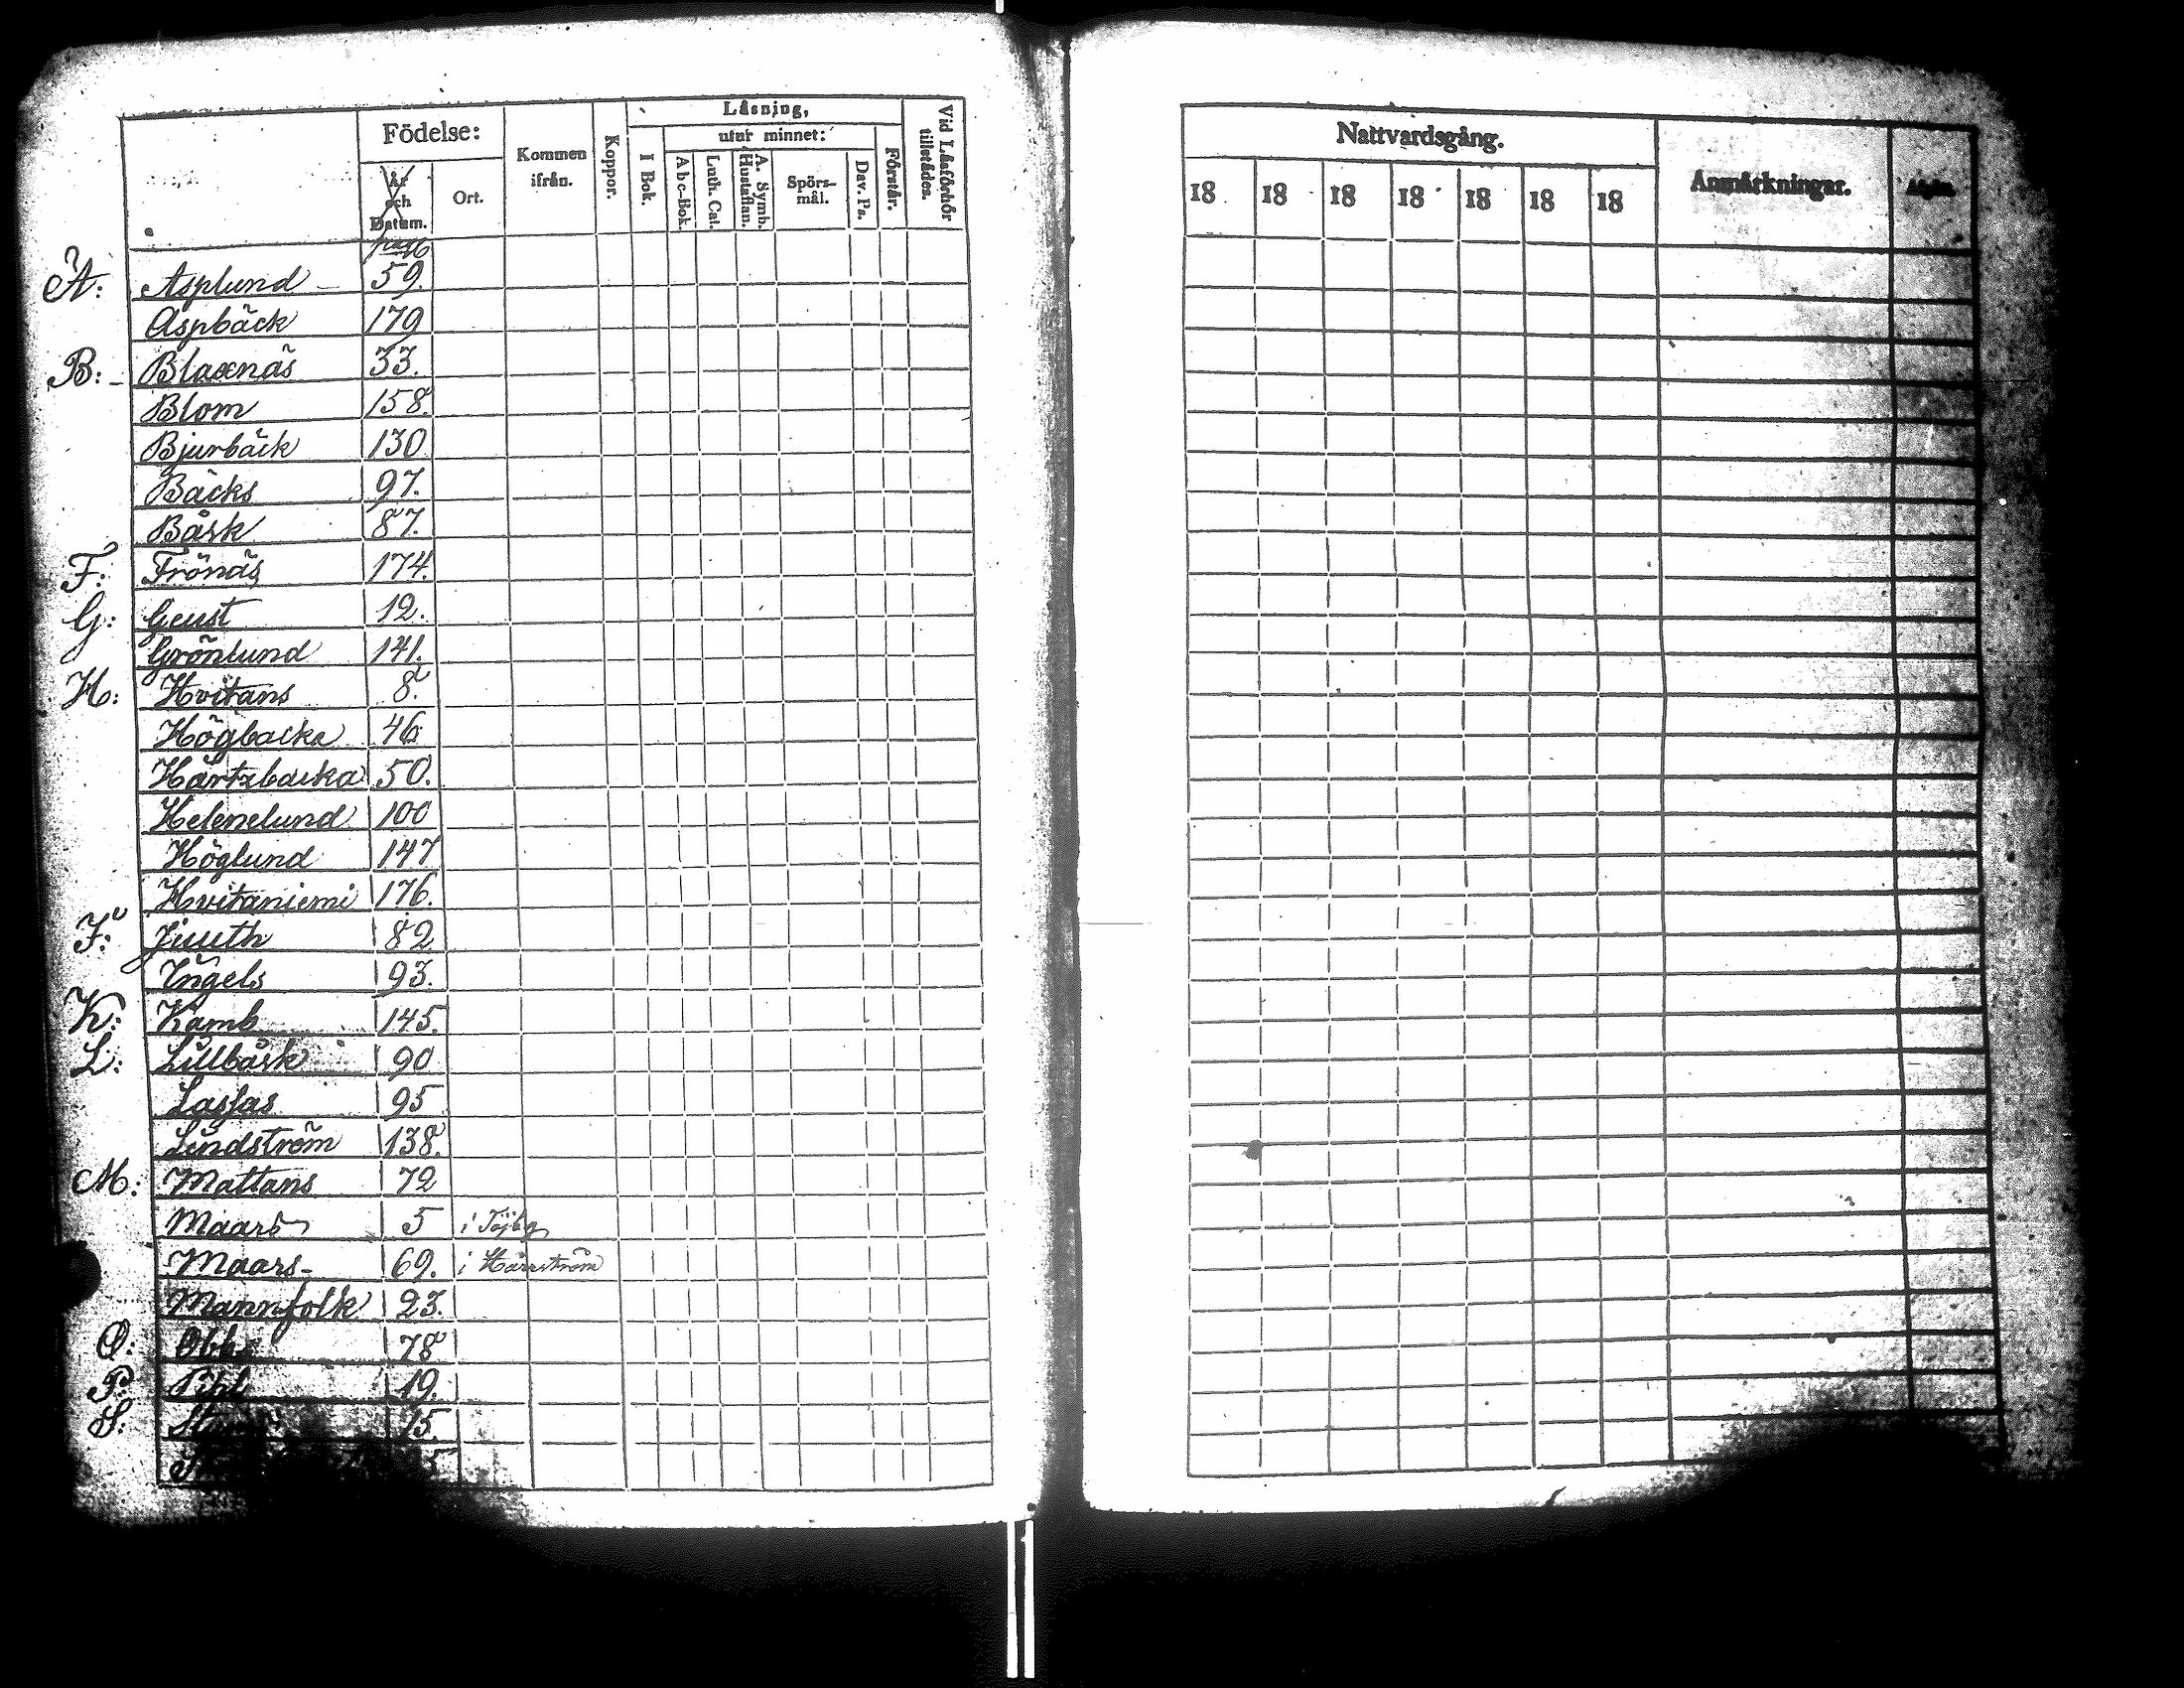 Födelse:
År och Datum.
Ort.
Kommen ifrån.
Koppor.
Läsning,
I Bok.
utur minnet:
A b c-Bok.
Luth. Cat.
A. Symb. Hustaflan.
Spörs-mål.
Dav. Ps.
Förstår.
Vid Läsförhör tillstädes.
A: Asplund 59.
Aspbäck 179
B: Blaxnäs 33.
Blom 158.
Bjurbäck 130
Bäcks 97.
Båsk 87.
F: Frönäs 174.
G: Geust 12.
Grönlund 141.
H: Hvitans 8.
Högbacka 46.
Hartzbacka 50.
Helenelund 100
Höglund 147
Hvitaniemi 176.
J: Juuth 82
Ingels 93.
K: Kamb 145.
L: Lillbåsk 90
Lassas 95
Lindström 138.
M: Mattans 72
Maars 5 i Töjby
Maars 69. i Harrström
Mannfolk 23.
O: 78
P: Pihl 19.
S: 15.
Nattvardsgång.
18 18 18 18 18 18 18
Anmärkningar.